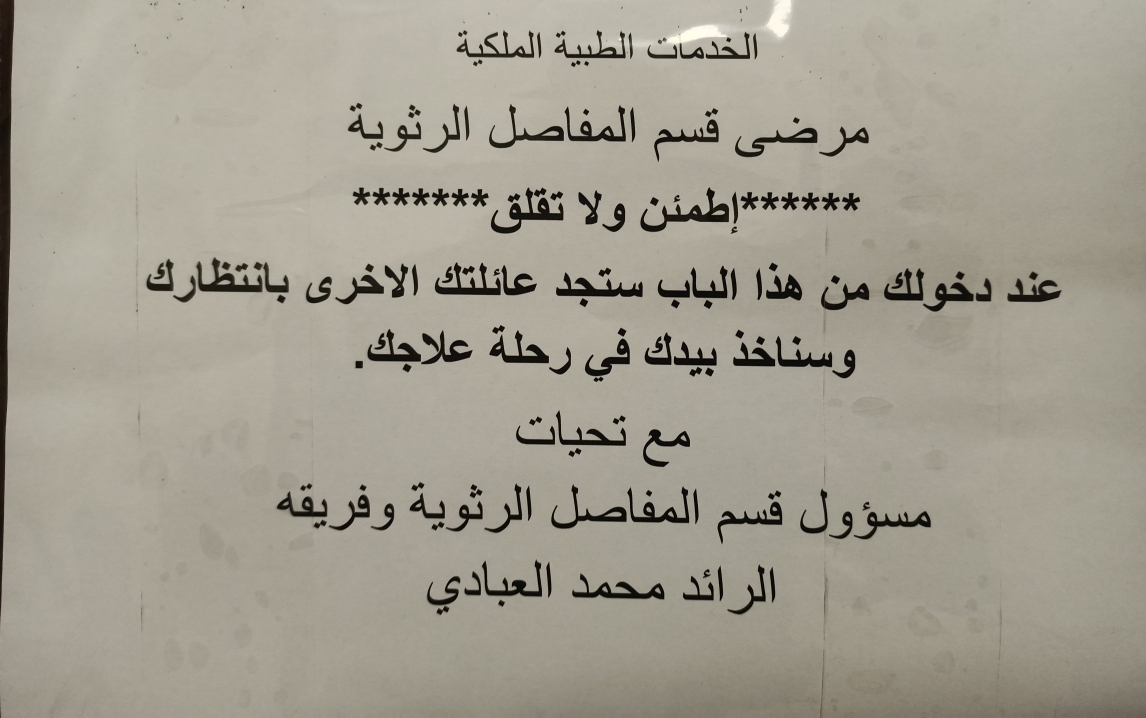 الخدمات الطبية الملكية
مرضى قسم المفاصل الرثوية
******إطمئن ولا تقلق*******
عند دخولك من هذا الباب ستجد عائلتك الاخرى بانتظارك
وسناخذ بيدك في رحلة علاجك.
مع تحيات
مسؤول قسم المفاصل الرثوية وفريقه
الرائد محمد العبادي